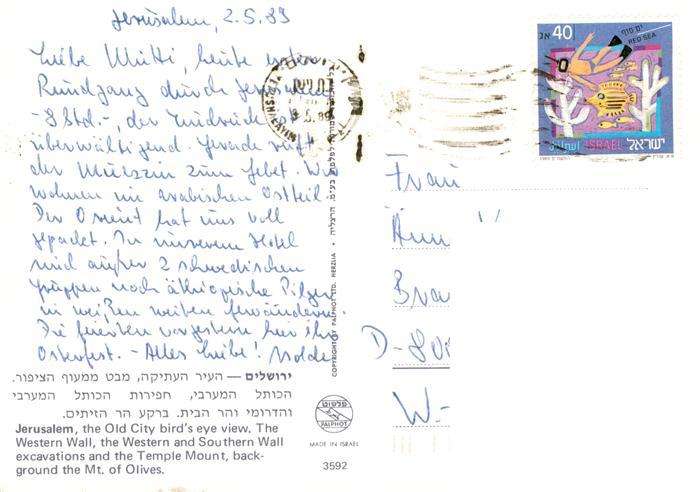 Jerusalem, 2.5.89
Liebe Mutti, heute ersten
Rundgang durch Jerusalem
-8 Std.-, der Eindruck ist
überwältigend. Gerade ruft
der Muezzin zum Gebet. Wir
wohnen im arabischen Ostteil.
Der Orient hat uns voll
gepackt. In unserem Hotel
sind außer 2 schwedischen
Gruppen noch äthiopische Pilger
in weißen weiten Gewändern.
Die feierten vorgestern hier ihr
Osterfest. - Alles Liebe! Isolde
ירושלים — העיר העתיקה, מבט ממעוף הציפור.
הכותל המערבי, חפירות הכותל המערבי
והדרומי והר הבית. ברקע הר הזיתים.
Jerusalem, the Old City bird's eye view. The
Western Wall, the Western and Southern Wall
excavations and the Temple Mount, back-
ground the Mt. of Olives.
COPYRIGHT BY PALPHOT LTD. HERZLIA
פלפוט
PALPHOT
MADE IN ISRAEL
3592
40
ים סוף
RED SEA
ISRAEL ישראל
Frau
Änn
Bra
D-
W-